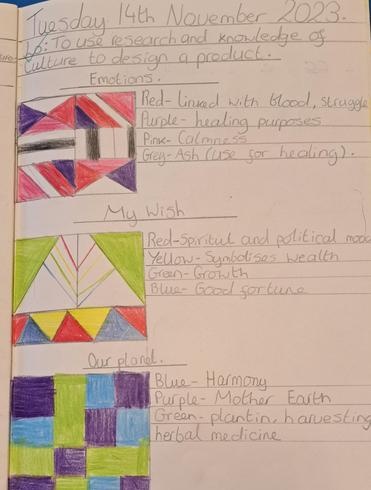 Tuesday 14th November 2023.
Lo: To use research and knowledge of
Culture to design a product.
Emotions.
Red- linked with blood, struggle
Purple- healing purposes
Pink- Calmness
Grey- Ash (use for healing).
My Wish
Red-Spiritul and political mood
Yellow- Symbolises wealth
Green- Growth
Blue- Good fortune
Our planet.
Blue- Harmony
Purple- Mother Earth
Green- plantin, harvesting
herbal medicine